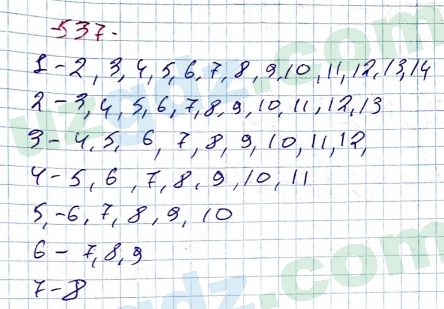 537.
1-2, 3, 4, 5, 6, 7, 8, 9, 10, 11, 12, 13, 14
2-3, 4, 5, 6, 7, 8, 9, 10, 11, 12, 13
3-4, 5, 6, 7, 8, 9, 10, 11, 12,
4-5, 6, 7, 8, 9, 10, 11
5,-6, 7, 8, 9, 10
6-7, 8, 9
7-8
uzgdz.com